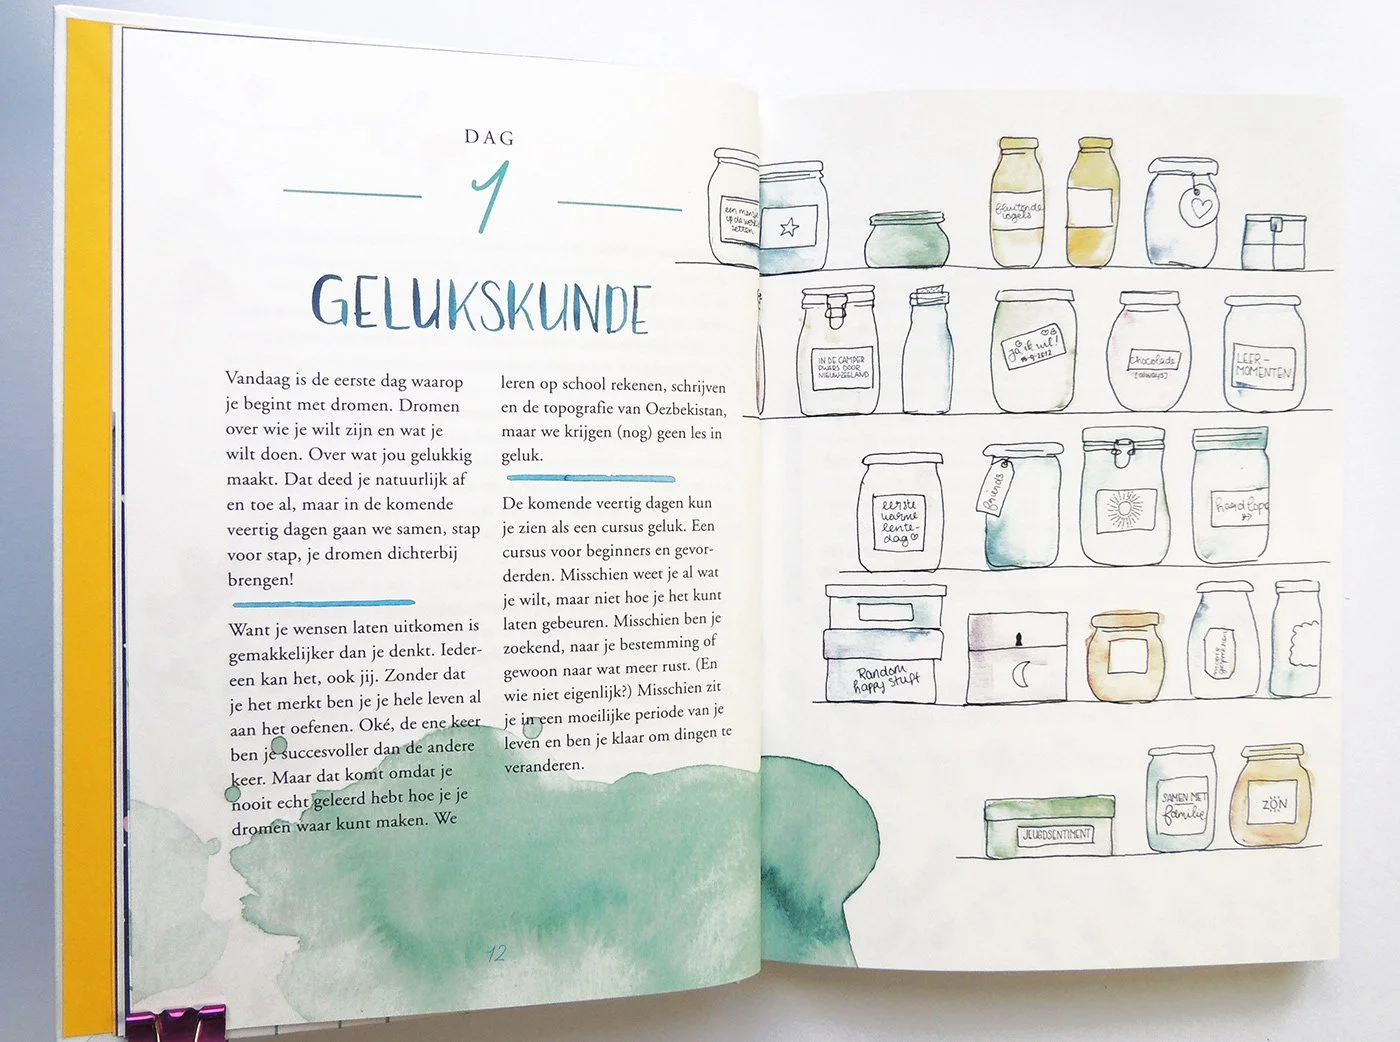 DAG
1
GELUKSKUNDE
Vandaag is de eerste dag waarop
je begint met dromen. Dromen
over wie je wilt zijn en wat je
wilt doen. Over wat jou gelukkig
maakt. Dat deed je natuurlijk af
en toe al, maar in de komende
veertig dagen gaan we samen, stap
voor stap, je dromen dichterbij
brengen!
Want je wensen laten uitkomen is
gemakkelijker dan je denkt. Ieder-
een kan het, ook jij. Zonder dat
je het merkt ben je je hele leven al
aan het oefenen. Oké, de ene keer
ben je succesvoller dan de andere
keer. Maar dat komt omdat je
nooit echt geleerd hebt hoe je je
dromen waar kunt maken. We
leren op school rekenen, schrijven
en de topografie van Oezbekistan,
maar we krijgen (nog) geen les in
geluk.
De komende veertig dagen kun
je zien als een cursus geluk. Een
cursus voor beginners en gevor-
derden. Misschien weet je al wat
je wilt, maar niet hoe je het kunt
laten gebeuren. Misschien ben je
zoekend, naar je bestemming of
gewoon naar wat meer rust. (En
wie niet eigenlijk?) Misschien zit
je in een moeilijke periode van je
leven en ben je klaar om dingen te
veranderen.
12
een mens
op de
zetten
fluitende
vogels
IN DE CAMPER
DWARS DOOR
NIEUW-ZEELAND
ja ik wil!
chocolade
(always)
LEER-
MOMENTEN
eerste
warme
lente-
dag
friends
Random
happy stuff
JEUGDSENTIMENT
SAMEN MET
familie
ZON